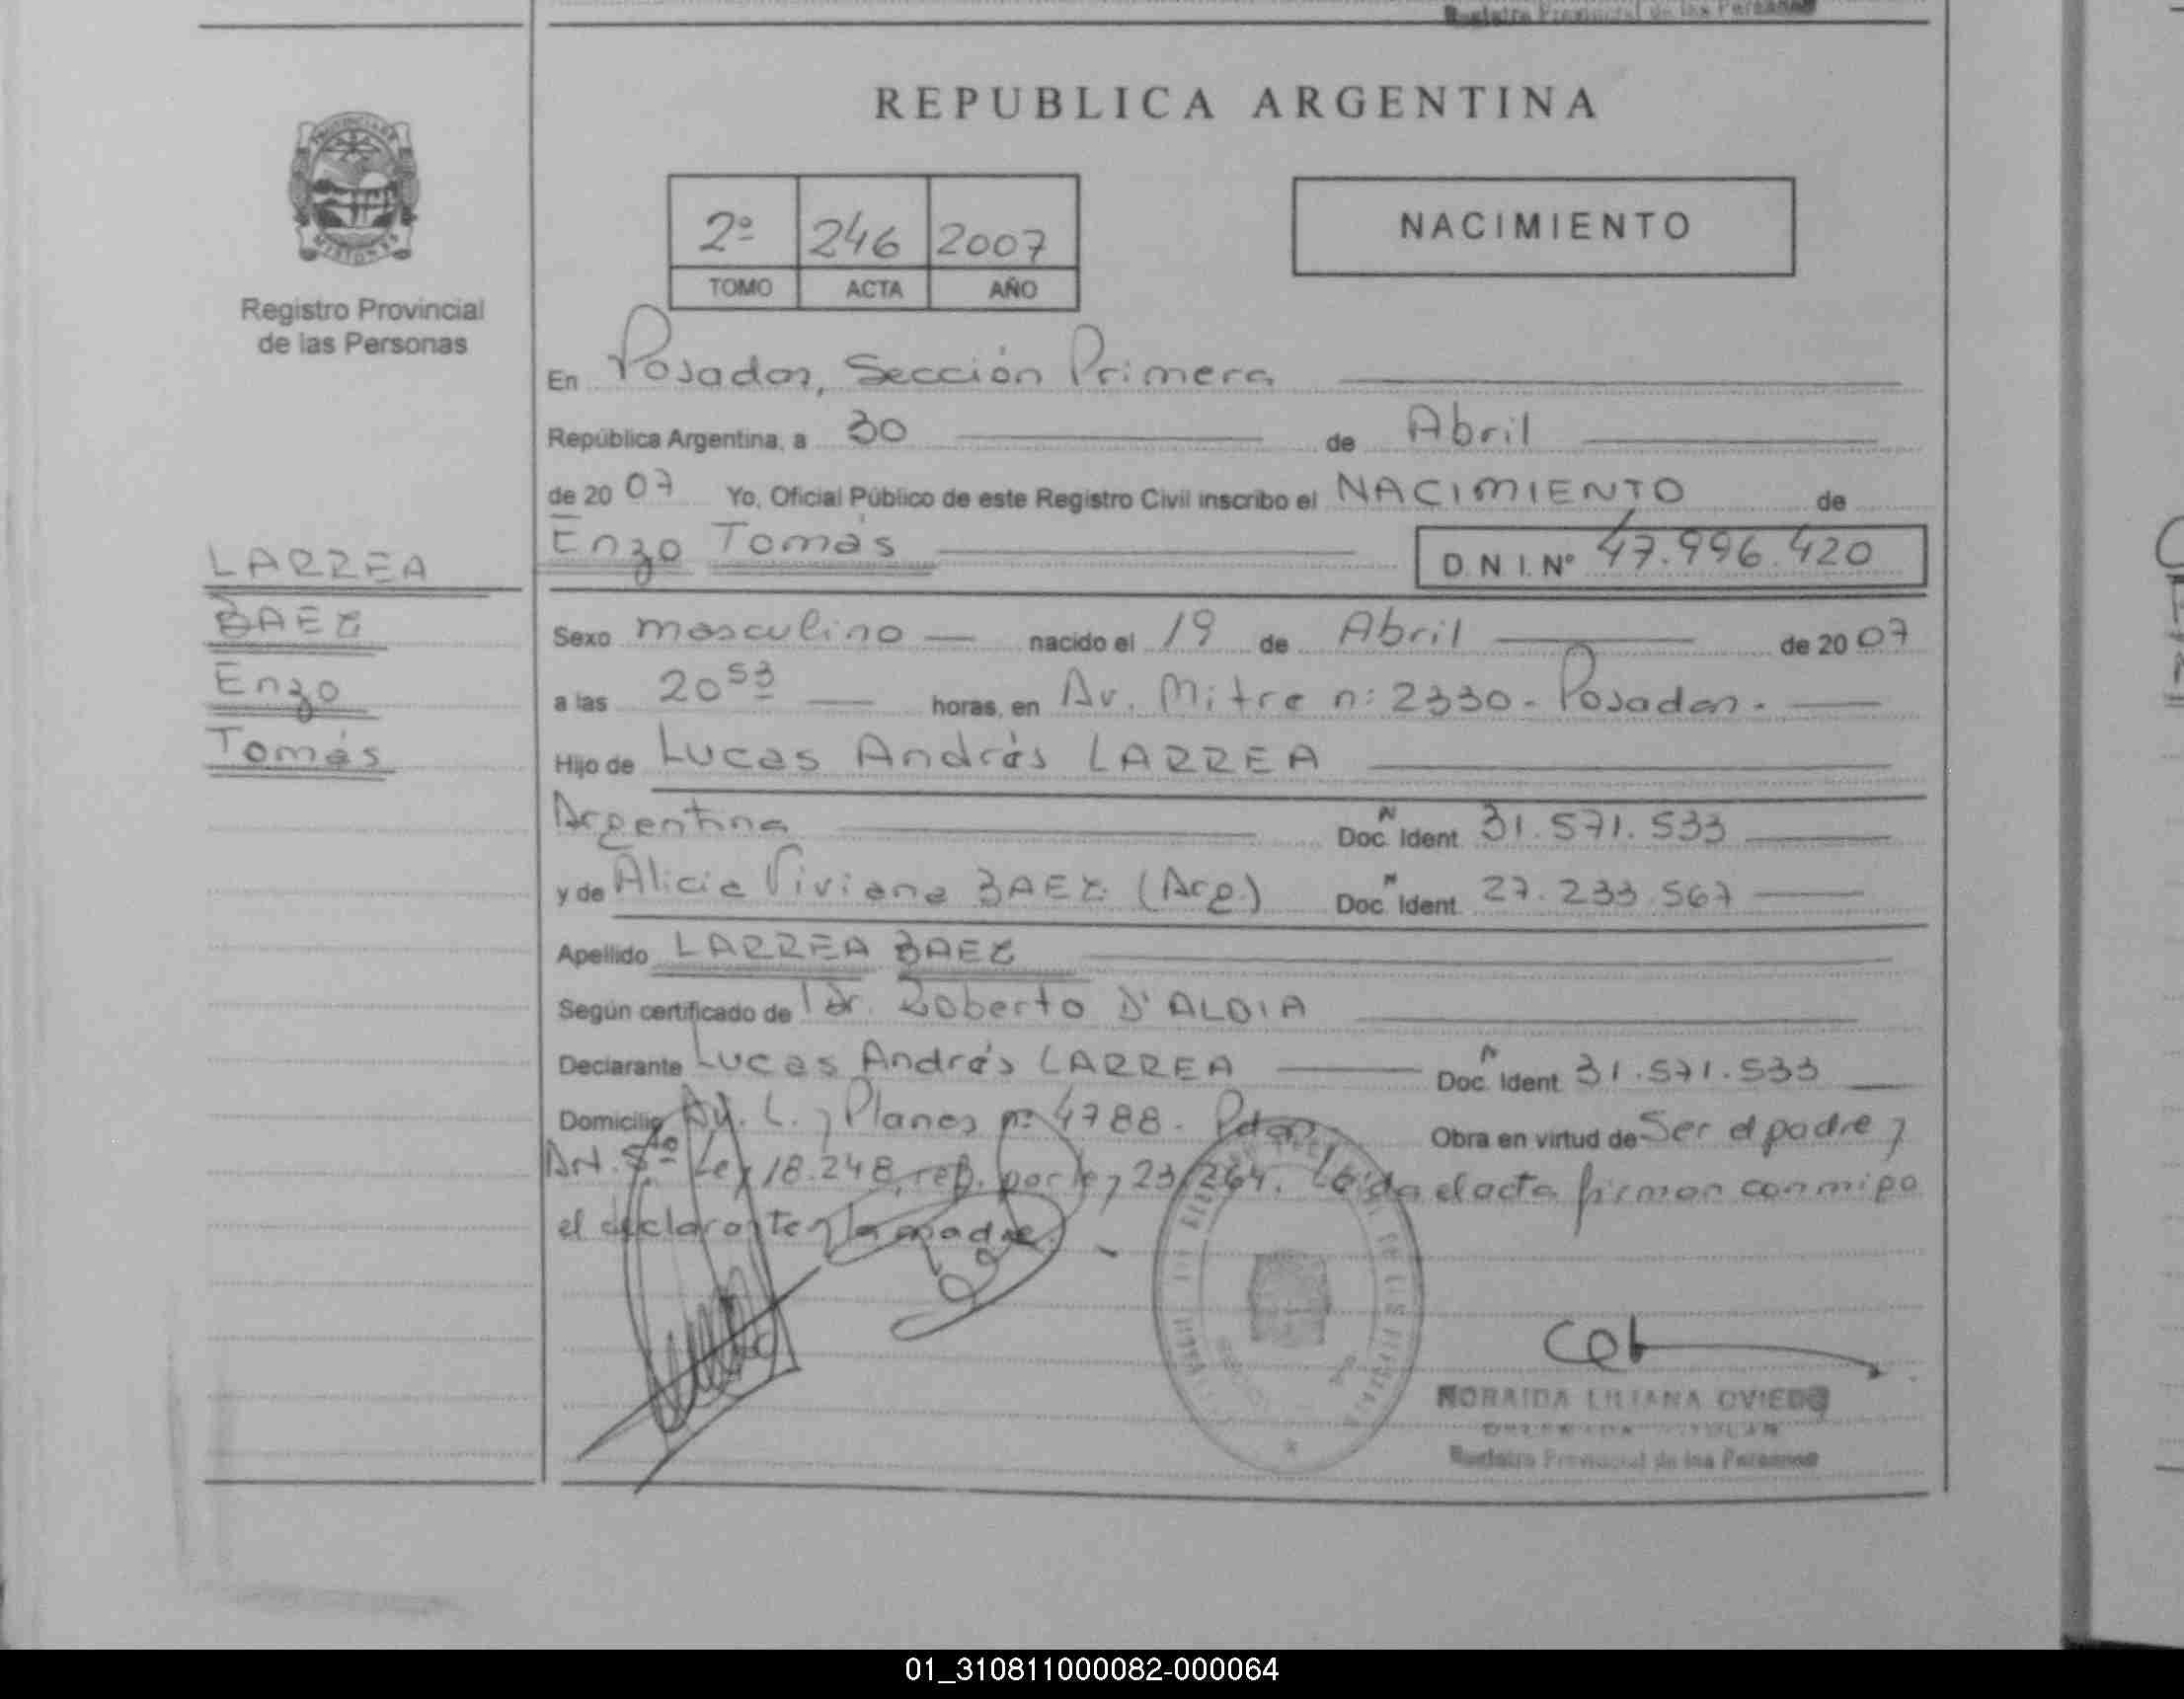 Registro Provincial de las Personas
REPUBLICA ARGENTINA
PROVINCIA DE
MISIONES
Registro Provincial
de las Personas
2º 246 2007
TOMO ACTA AÑO
NACIMIENTO
En Posadas, Sección Primera
República Argentina, a 30 de Abril
de 2007 Yo, Oficial Público de este Registro Civil inscribo el NACIMIENTO de
Enzo Tomás D.N.I. Nº 47.996.420
LARREA
BAEZ
Enzo
Tomás
Sexo masculino nacido el 19 de Abril de 2007
a las 20 53 horas, en Av. Mitre n: 2330 - Posadas.
Hijo de Lucas Andrés LARREA
Argentina Doc. Ident. 31.571.533
y de Alicia Viviana BAEZ (Arg.) Doc. Ident. 27.233.567
Apellido LARREA BAEZ
Según certificado de Dr. Roberto D'ALOIA
Declarante Lucas Andrés LARREA Doc. Ident. 31.571.533
Domicilio Av. L. y Planes nº 4788 - Pdas. Obra en virtud de Ser el padre y
Art. 5º Ley 18.248, ref. por ley 23.264. Leída el acta firman conmigo
el declarante y la madre. -
NORAIDA LILIANA OVIEDO
DELEGADA TITULAR
Registro Provincial de las Personas
01_310811000082-000064